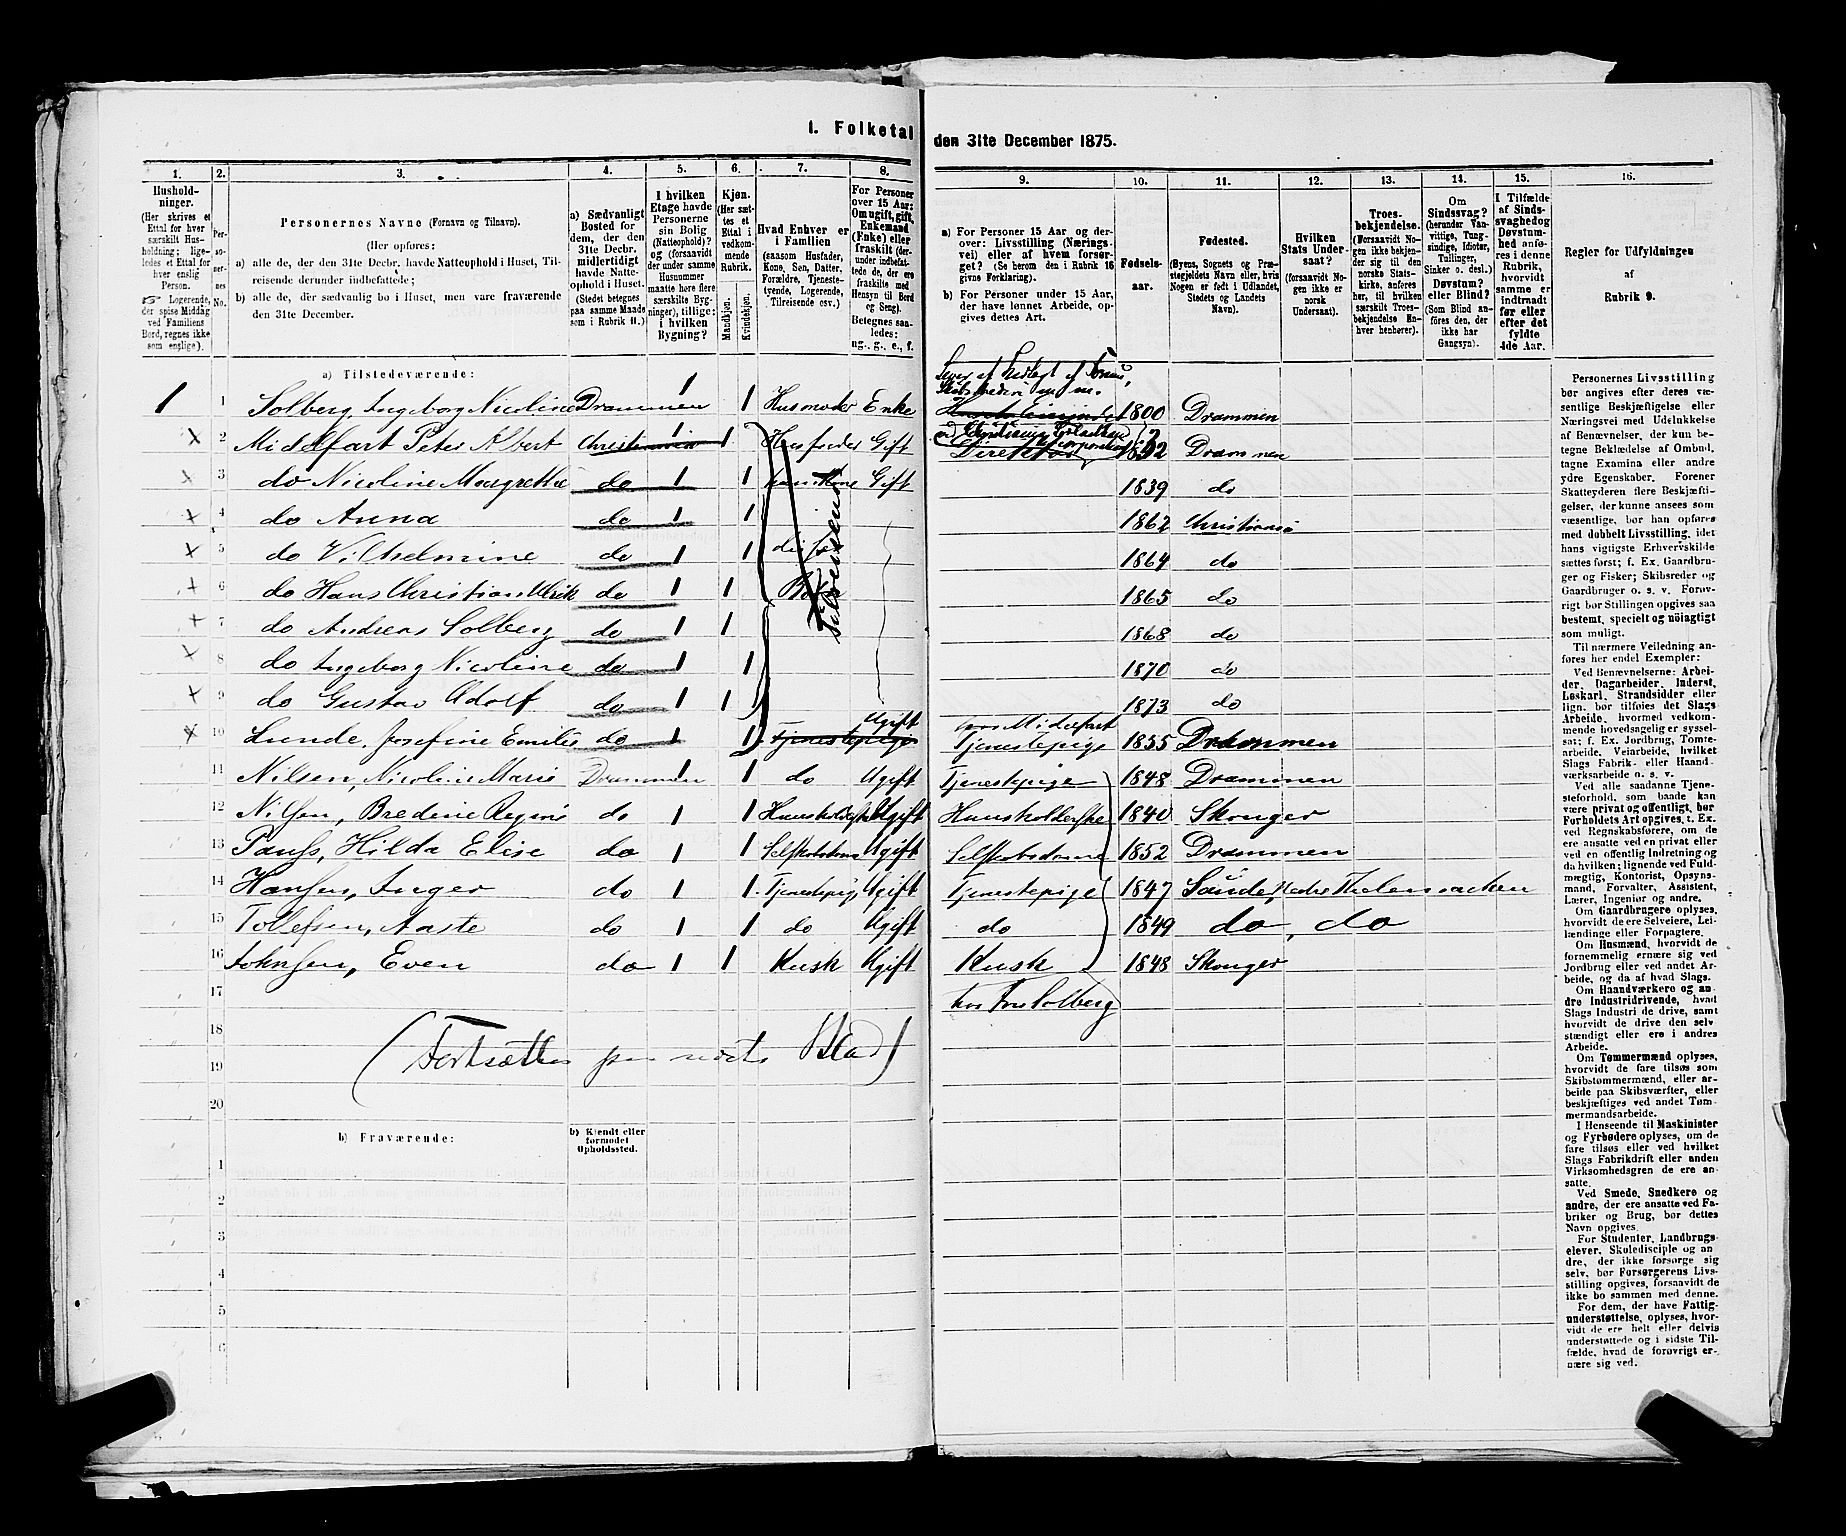 I. Folketal
den 31te December 1875.
1.
Hushold-
ninger.
(Her skrives et
Ettal for hver
særskilt Hus-
holdning; lige-
ledes et Ettal for
hver enslig
Person.
Logerende,
der spise Middag
ved Familiens
Bord, regnes ikke
som enslige).
2.
Per-
so-
ner-
nes
No.
3.
Personernes Navne (Fornavn og Tilnavn).
(Her opføres:
a) alle de, der den 31te Decbr. havde Natteophold i Huset, Til-
reisende derunder indbefattede;
b) alle de, der sædvanlig bo i Huset, men vare fraværende
den 31te December.
4.
a) Sædvanligt
Bosted for
dem, der den
31te Decbr.
midlertidigt
havde Natte-
ophold i Huset.
(Stedet betegnes
paa samme Maade
som i Rubrik 11.)
5.
I hvilken
Etage havde
Personerne
sin Bolig
(Natteophold)?
og (forsaavidt
der under samme
Husnummer
maatte høre flere
særskilte Byg-
ninger), tillige:
i hvilken
Bygning?
6.
Kjøn.
(Her sæt-
tes et
Ettal i
vedkom-
mende
Rubrik.
Mandkjøn.
Kvindekjøn.
7.
Hvad Enhver er
i Familien
(saasom Husfader,
Kone, Søn, Datter,
Forældre, Tjeneste-
tyende, Logerende,
Tilreisende osv.)
8.
For Personer
over 15 Aar:
Om ugift, gift,
Enkemand
(Enke) eller
fraskilt (der-
under indbefat-
tede de, der ere
fraskilte med
Hensyn til Bord
og Seng).
Betegnes saa-
ledes:
ug., g., e., f.
9.
a) For Personer 15 Aar og der-
over: Livsstilling (Nærings-
vei) eller af hvem forsør-
get? (Se herom den i Rubrik 16
givne Forklaring).
b) For Personer under 15 Aar,
der have lønnet Arbeide, op-
gives dettes Art.
10.
Fødsels-
aar.
11.
Fødested.
(Byens, Sognets og Præ-
stegjeldets Navn eller, hvis
Nogen er født i Udlandet,
Stedets og Landets
Navn).
12.
Hvilken
Stats Under-
saat?
(forsaavidt No-
gen ikke er
norsk
Undersaat).
13.
Troes-
bekjendelse.
(Forsaavidt No-
gen ikke bekjen-
der sig til den
norske Stats-
kirke, anføres
her, til hvilken
særskilt Troes-
bekjendelse En-
hver henhører).
14.
Om
Sindssvag?
(herunder Van-
vittige, Tung-
sindige, Idioter,
Tullinger,
Sinker o. desl.)
Døvstum?
eller Blind?
(Som Blind an-
føres den, der
ikke har
Gangsyn).
15.
I Tilfælde
af Sinds-
svaghed og
Døvstum-
hed anfø-
res i denne
Rubrik,
hvorvidt
samme er
indtraadt
før eller
efter det
fyldte
4de Aar.
16.
Regler for Udfyldningen
af
Rubrik 9.
a) Tilstedeværende:
1 1 Solberg, Ingeborg Nicoline Drammen 1 1 Husmoder Enke 1800 Drammen
x 2 Middelfart Peter Albert Christiania 1 1 Husfader Gift Direktør Drammen
x 3 do Nicoline Margrethe do 1 1 Kone Gift 1839 do
x 4 do Anna do 1 1 1862 Christiania
x 5 do Vilhelmine do 1 1 1864 do
x 6 do Hans Christian Ulrik do 1 1 Børn 1865 do
x 7 do Andreas Solberg do 1 1 1868 do
x 8 do Ingeborg Nicoline do 1 1 1870 do
x 9 do Gustav Adolf do 1 1 1873 do
Tilreisende
x 10 Lunde, Josefine Emilie do 1 1 Tjenestepige Ugift hos Middelfart Tjenestepige 1855 Drammen
11 Nilsen, Nicoline Marie Drammen 1 1 do Ugift Tjenestepige 1848 Drammen
12 Nilsen, Bredine Regine do 1 1 Huusholderske Ugift Huusholderske 1840 Skouger
13 Pauss, Hilda Elise do 1 1 Selskabsdame Ugift Selskabsdame 1852 Drammen
14 Hansen, Inger do 1 1 Tjenestepige Ugift Tjenestepige 1847
15 Tollefsen, Aaste do 1 1 do Ugift do 1849 do, do
16 Johnsen, Even do 1 1 Kusk Ugift Kusk 1848 Skouger
17 hos Fru Solberg
18
19 (Fortsættes paa næste Blad)
20
b) Fraværende:
b) Kjendt eller
formodet
Opholdssted.
1
2
3
4
5
6
Personernes Livsstilling
bør angives efter deres væ-
sentlige Beskjæftigelse eller
Næringsvei med Udelukkelse
af Benævnelser, der kun be-
tegne Beklædelse af Ombud,
tagne Examina eller andre
ydre Egenskaber. Forener
Skatteyderen flere Beskjæfti-
gelser, der kunne ansees som
væsentlige, bør han opføres
med dobbelt Livsstilling, idet
hans vigtigste Erhvervskilde
sættes først; f. Ex. Gaardbru-
ger og Fisker; Skibsreder og
Gaardbruger o. s. v. Forøv-
rigt bør Stillingen opgives saa
bestemt, specielt og nøiagtigt
som muligt.
Til nærmere Veiledning an-
føres her endel Exempler:
Ved Benævnelserne: Arbei-
der, Dagarbeider, Inderst,
Løskarl, Strandsidder eller
lign. bør tilføies det Slags
Arbeide, hvormed vedkom-
mende hovedsagelig er syssel-
sat; f. Ex. Jordbrug, Tomte-
arbeide, Veiarbeide, hvilket
Slags Fabrik- eller Haand-
værksarbeide o. s. v.
Ved alle saadanne Tjene-
steforhold, som baade kan
være privat og offentligt, bør
Forholdets Art opgives, t. Ex.
ved Regnskabsførere, om de
ere ansatte ved en privat eller
ved en offentlig Indretning og
da hvilken; lignende ved Fuld-
mægtig, Kontorist, Opsyns-
mand, Forvalter, Assistent,
Lærer, Ingeniør og andre.
Om Gaardbrugere oplyses,
hvorvidt de ere Selveiere, Lei-
lændinge eller Forpagtere.
Om Husmænd, hvorvidt de
fornemmelig ernære sig ved
Jordbrug eller ved andet Ar-
beide, og da af hvad Slags.
Om Haandværkere og an-
dre Industridrivende, hvad
Slags Industri de drive, samt
hvorvidt de drive den selv-
stændigt eller ere i andres
Arbeide.
Om Tømmermænd oplyses,
hvorvidt de fare tilsøs som
Skibstømmermænd, eller ar-
beide paa Skibsværfter, eller
beskjæftiges ved andet Tøm-
mermandsarbeide.
I Henseende til Maskinister
og Fyrbødere oplyses, om de
fare tilsøs eller ved hvilket
Slags Fabrikdrift eller anden
Virksomhedsgren de ere an-
satte.
Ved Smede, Snedkere og
andre, der ere ansatte ved Fa-
briker og Brug, bør dettes
Navn opgives.
For Studenter, Landbrugs-
elever, Skoledisciple og an-
dre, der ikke forsørge sig
selv, bør Forsørgerens Livs-
stilling opgives, forsaavidt de
ikke bo sammen med denne.
For dem, der have Fattig-
understøttelse, oplyses, hvor-
vidt de ere helt eller delvis
understøttede og i sidste Til-
fælde, hvad de forøvrigt er-
nære sig ved.